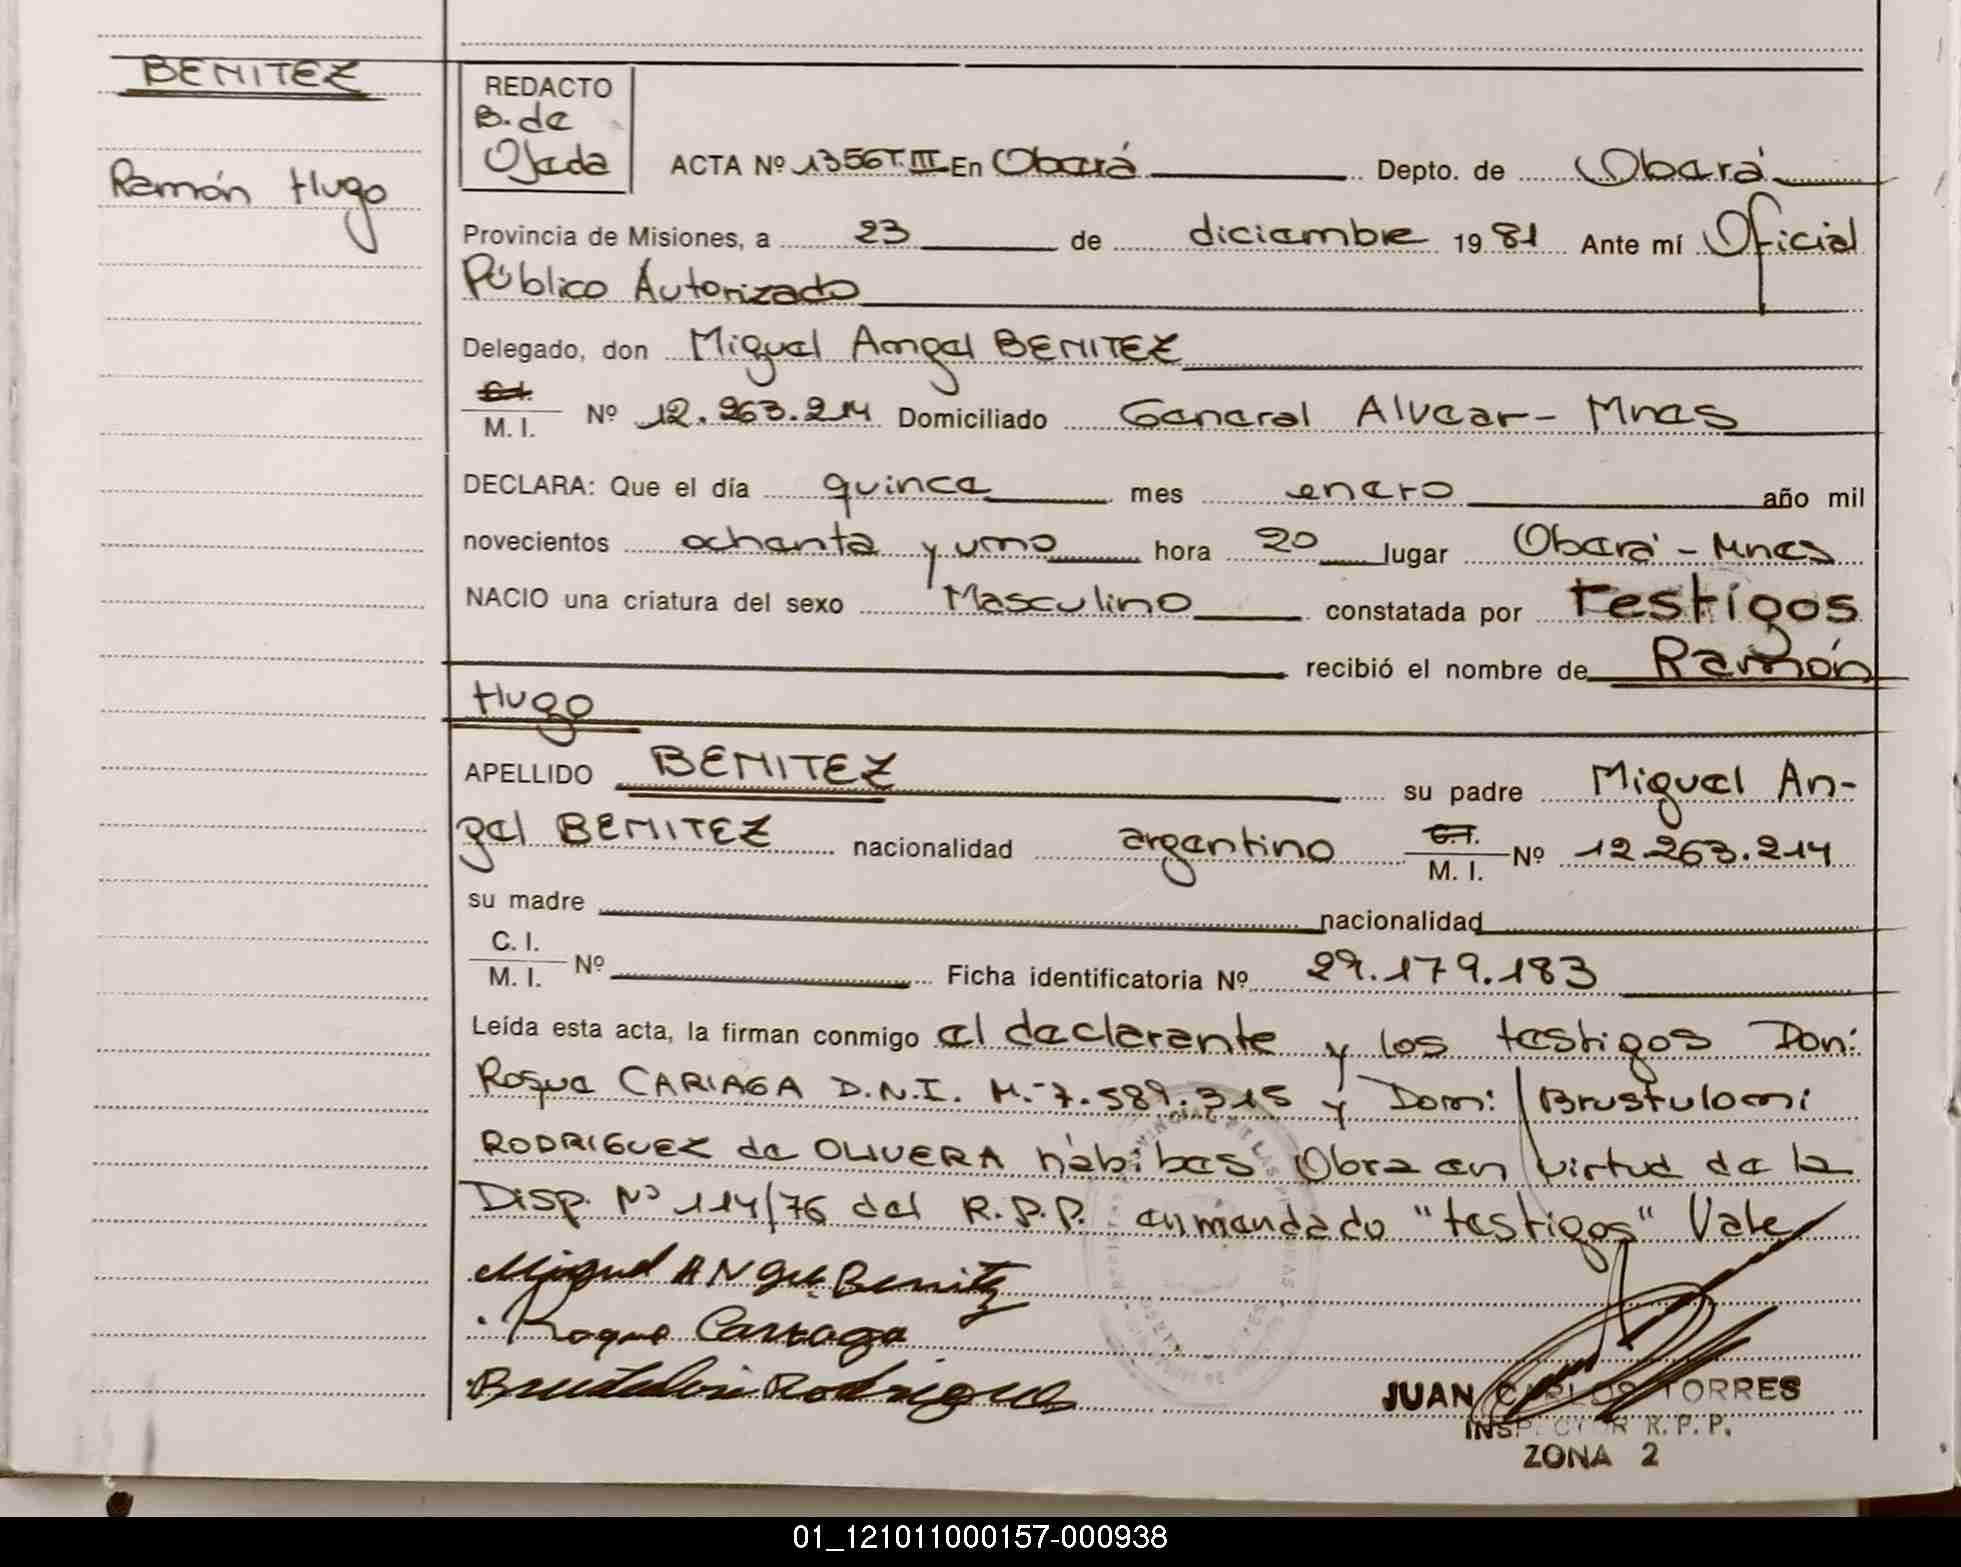 BENITEZ
Ramón Hugo
REDACTO
B. de
Ojeda
ACTA Nº 1356 T. III En Oberá Depto. de Oberá
Provincia de Misiones, a 23 de diciembre 19 81 Ante mí Oficial
Público Autorizado
Delegado, don Miguel Angel BENITEZ
C. I.
M. I. Nº 12.263.214 Domiciliado General Alvear - Mnes
DECLARA: Que el día quince mes enero año mil
novecientos ochenta y uno hora 20 lugar Oberá - Mnes
NACIO una criatura del sexo Masculino constatada por testigos
recibió el nombre de Ramón
Hugo
APELLIDO BENITEZ su padre Miguel An-
gel BENITEZ nacionalidad argentino C. I. M. I. Nº 12.263.214
su madre nacionalidad
C. I.
M. I. Nº Ficha identificatoria Nº 29.179.183
Leída esta acta, la firman conmigo el declarante y los testigos Don:
Roque CARIAGA D.N.I. M.-7.589.315 y Don: Brustuloni
RODRIGUEZ de OLIVERA hábibes Obra en virtud de la
Disp. Nº 114/76 del R.P.P. enmendado "testigos" Vale
Miguel ANgel Benitez
Roque Cariaga
Brustuloni Rodrigues
JUAN CARLOS TORRES
INSPECTOR R. P. P.
ZONA 2
01_121011000157-000938